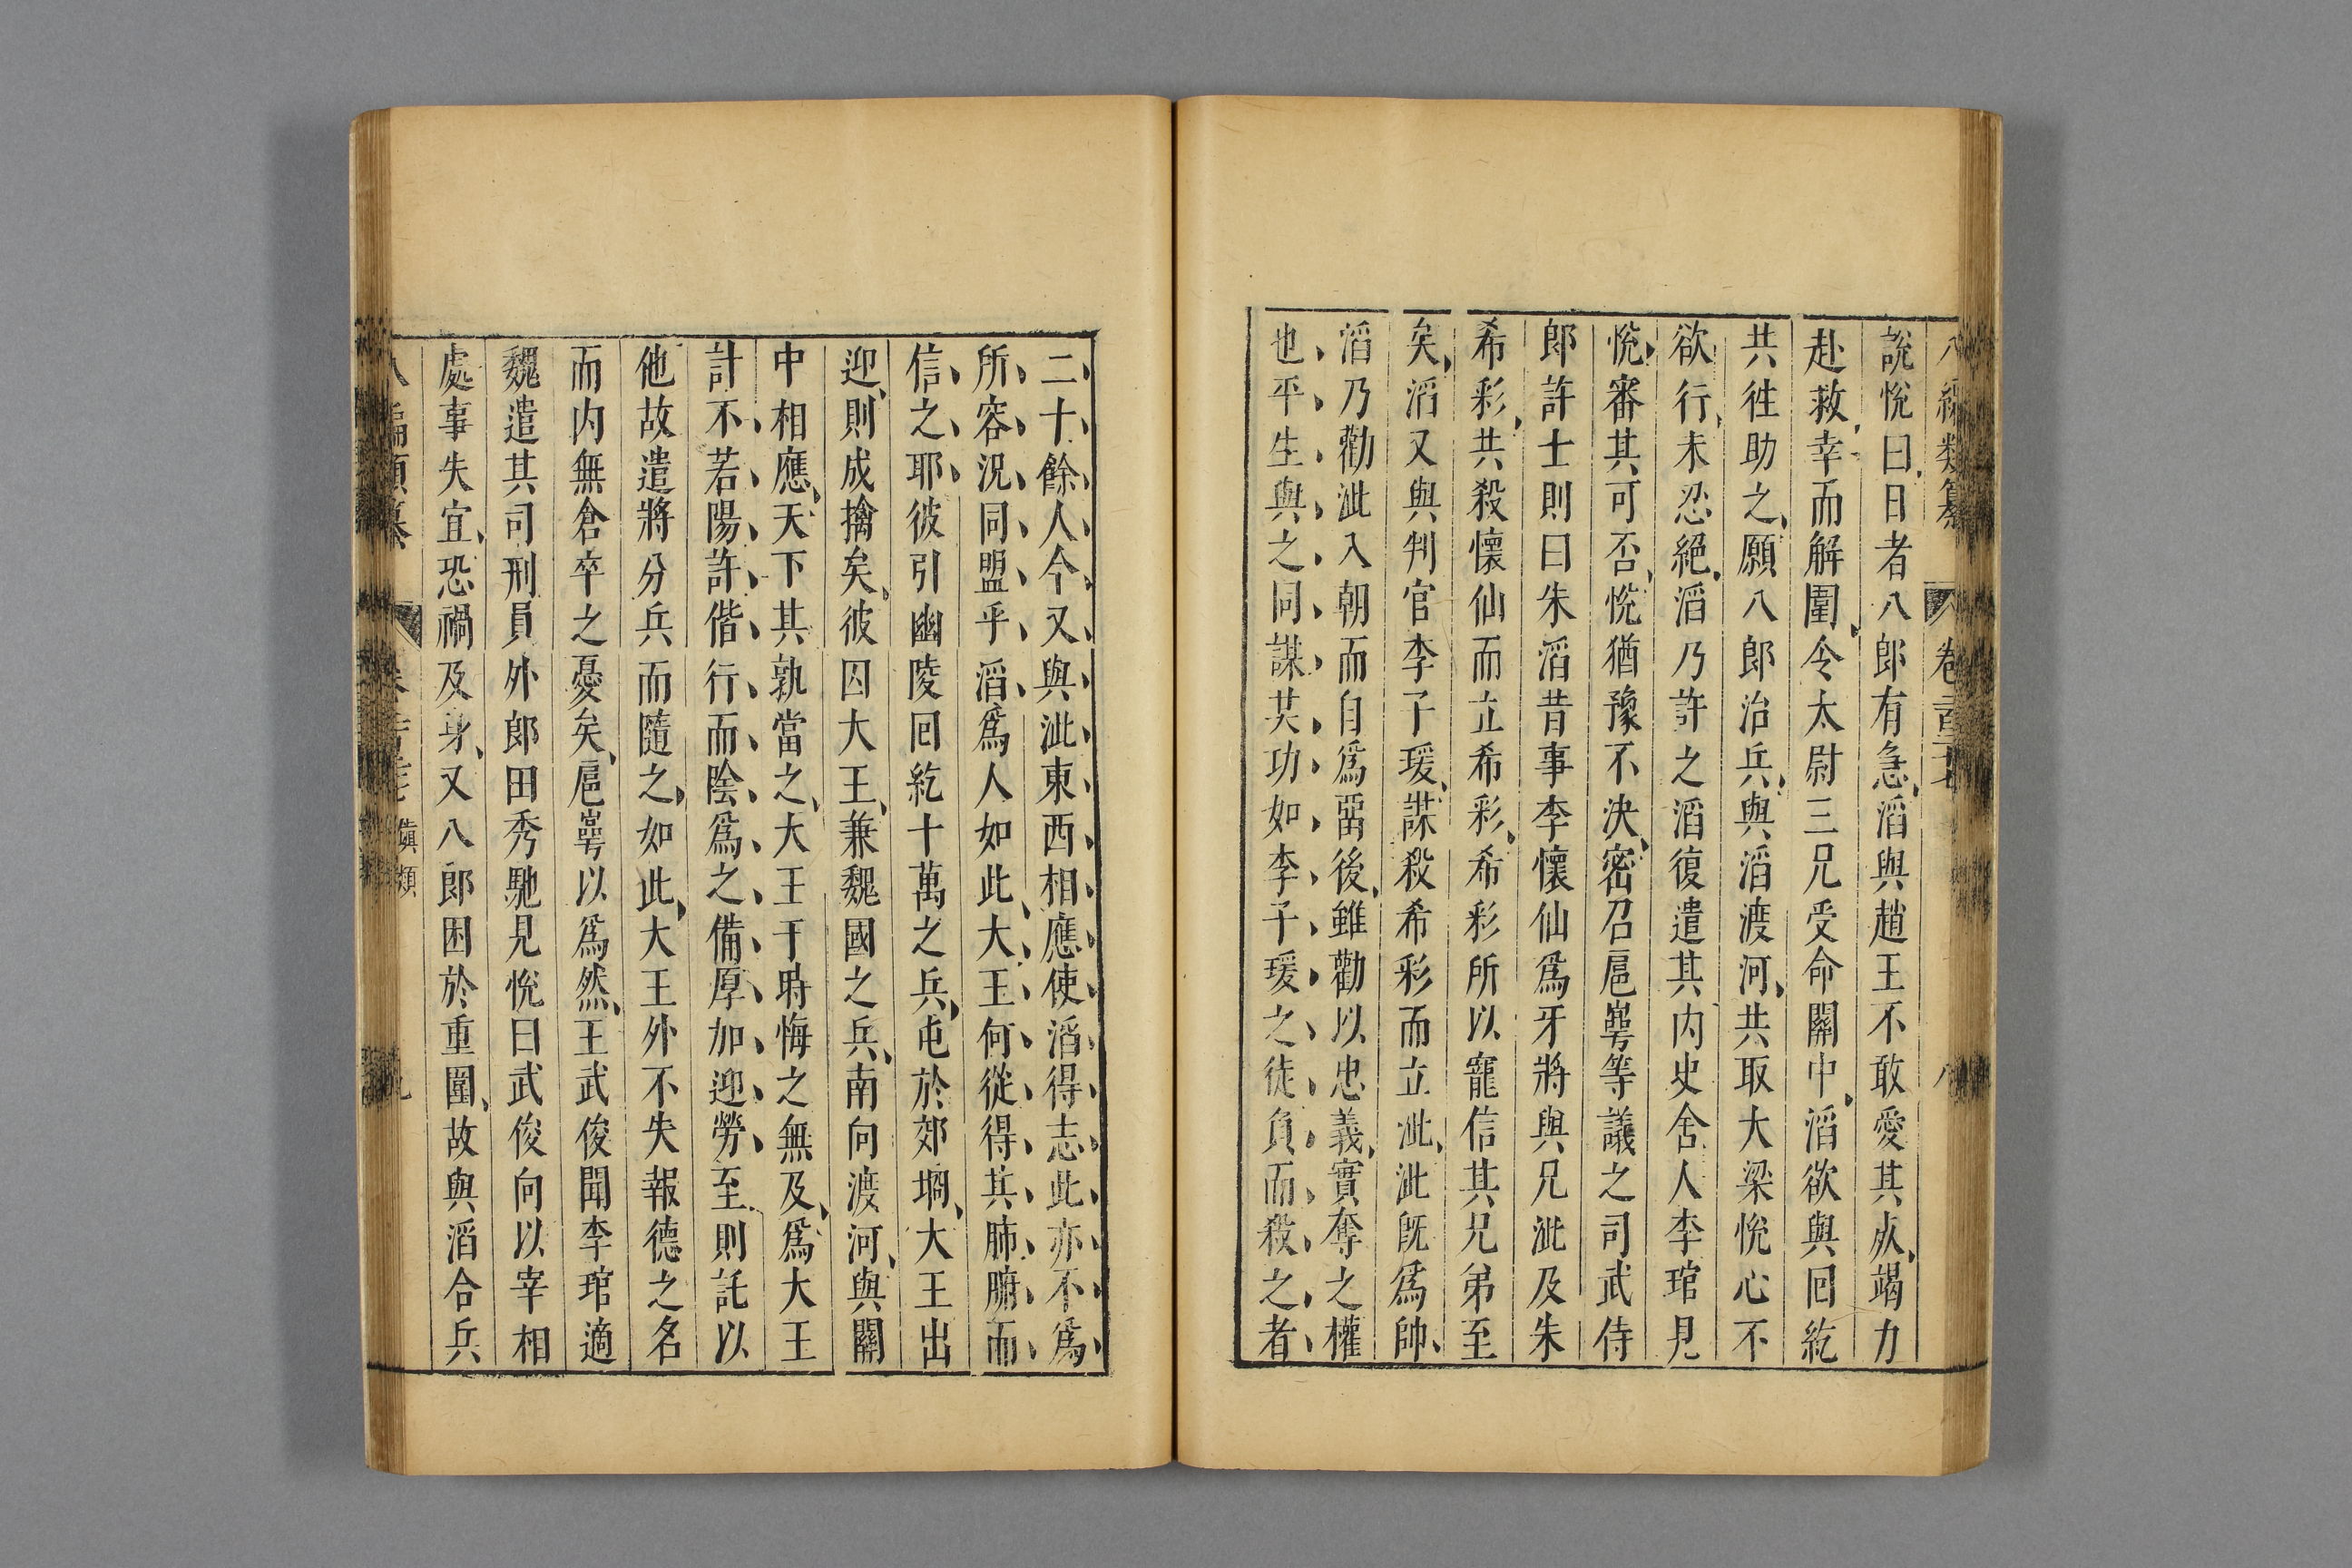 八編類纂 卷
說悅曰日者八郎有急滔與趙王不敢愛其死竭力
赴救幸而解圍今太尉三兄受命關中滔欲與囘紇
共徃助之願八郎治兵與滔渡河共取大梁悅心不
欲行未忍絕滔乃許之滔復遣其內史舍人李琯見
悅審其可否悅猶豫不決密召扈崿等議之司武侍
郎許士則曰朱滔昔事李懷仙爲牙將與兄泚及朱
希彩共殺懷仙而立希彩希彩所以寵信其兄弟至
矣滔又與判官李子瑗謀殺希彩而立泚泚旣爲帥
滔乃勸泚入朝而自爲留後雖勸以忠義實奪之權
也平生與之同謀共功如李子瑗之徒負而殺之者
二十餘人今又與泚東西相應使滔得志泚亦不爲
所容况同盟乎滔爲人如此大王何從得其肺腑而
信之耶彼引幽陵囘紇十萬之兵屯於郊坰大王出
迎則成擒矣彼囚大王兼魏國之兵南向渡河與關
中相應天下其孰當之大王于時悔之無及爲大王
計不若陽許偕行而陰爲之備厚加迎勞至則託以
他故遣將分兵而隨之如此大王外不失報德之名
而内無倉卒之憂矣扈崿以爲然王武俊聞李琯適
魏遣其司刑員外郎田秀馳見悅曰武俊向以宰相
處事失宜恐禍及身又八郎困於重圍故與滔合兵
八編類纂 類